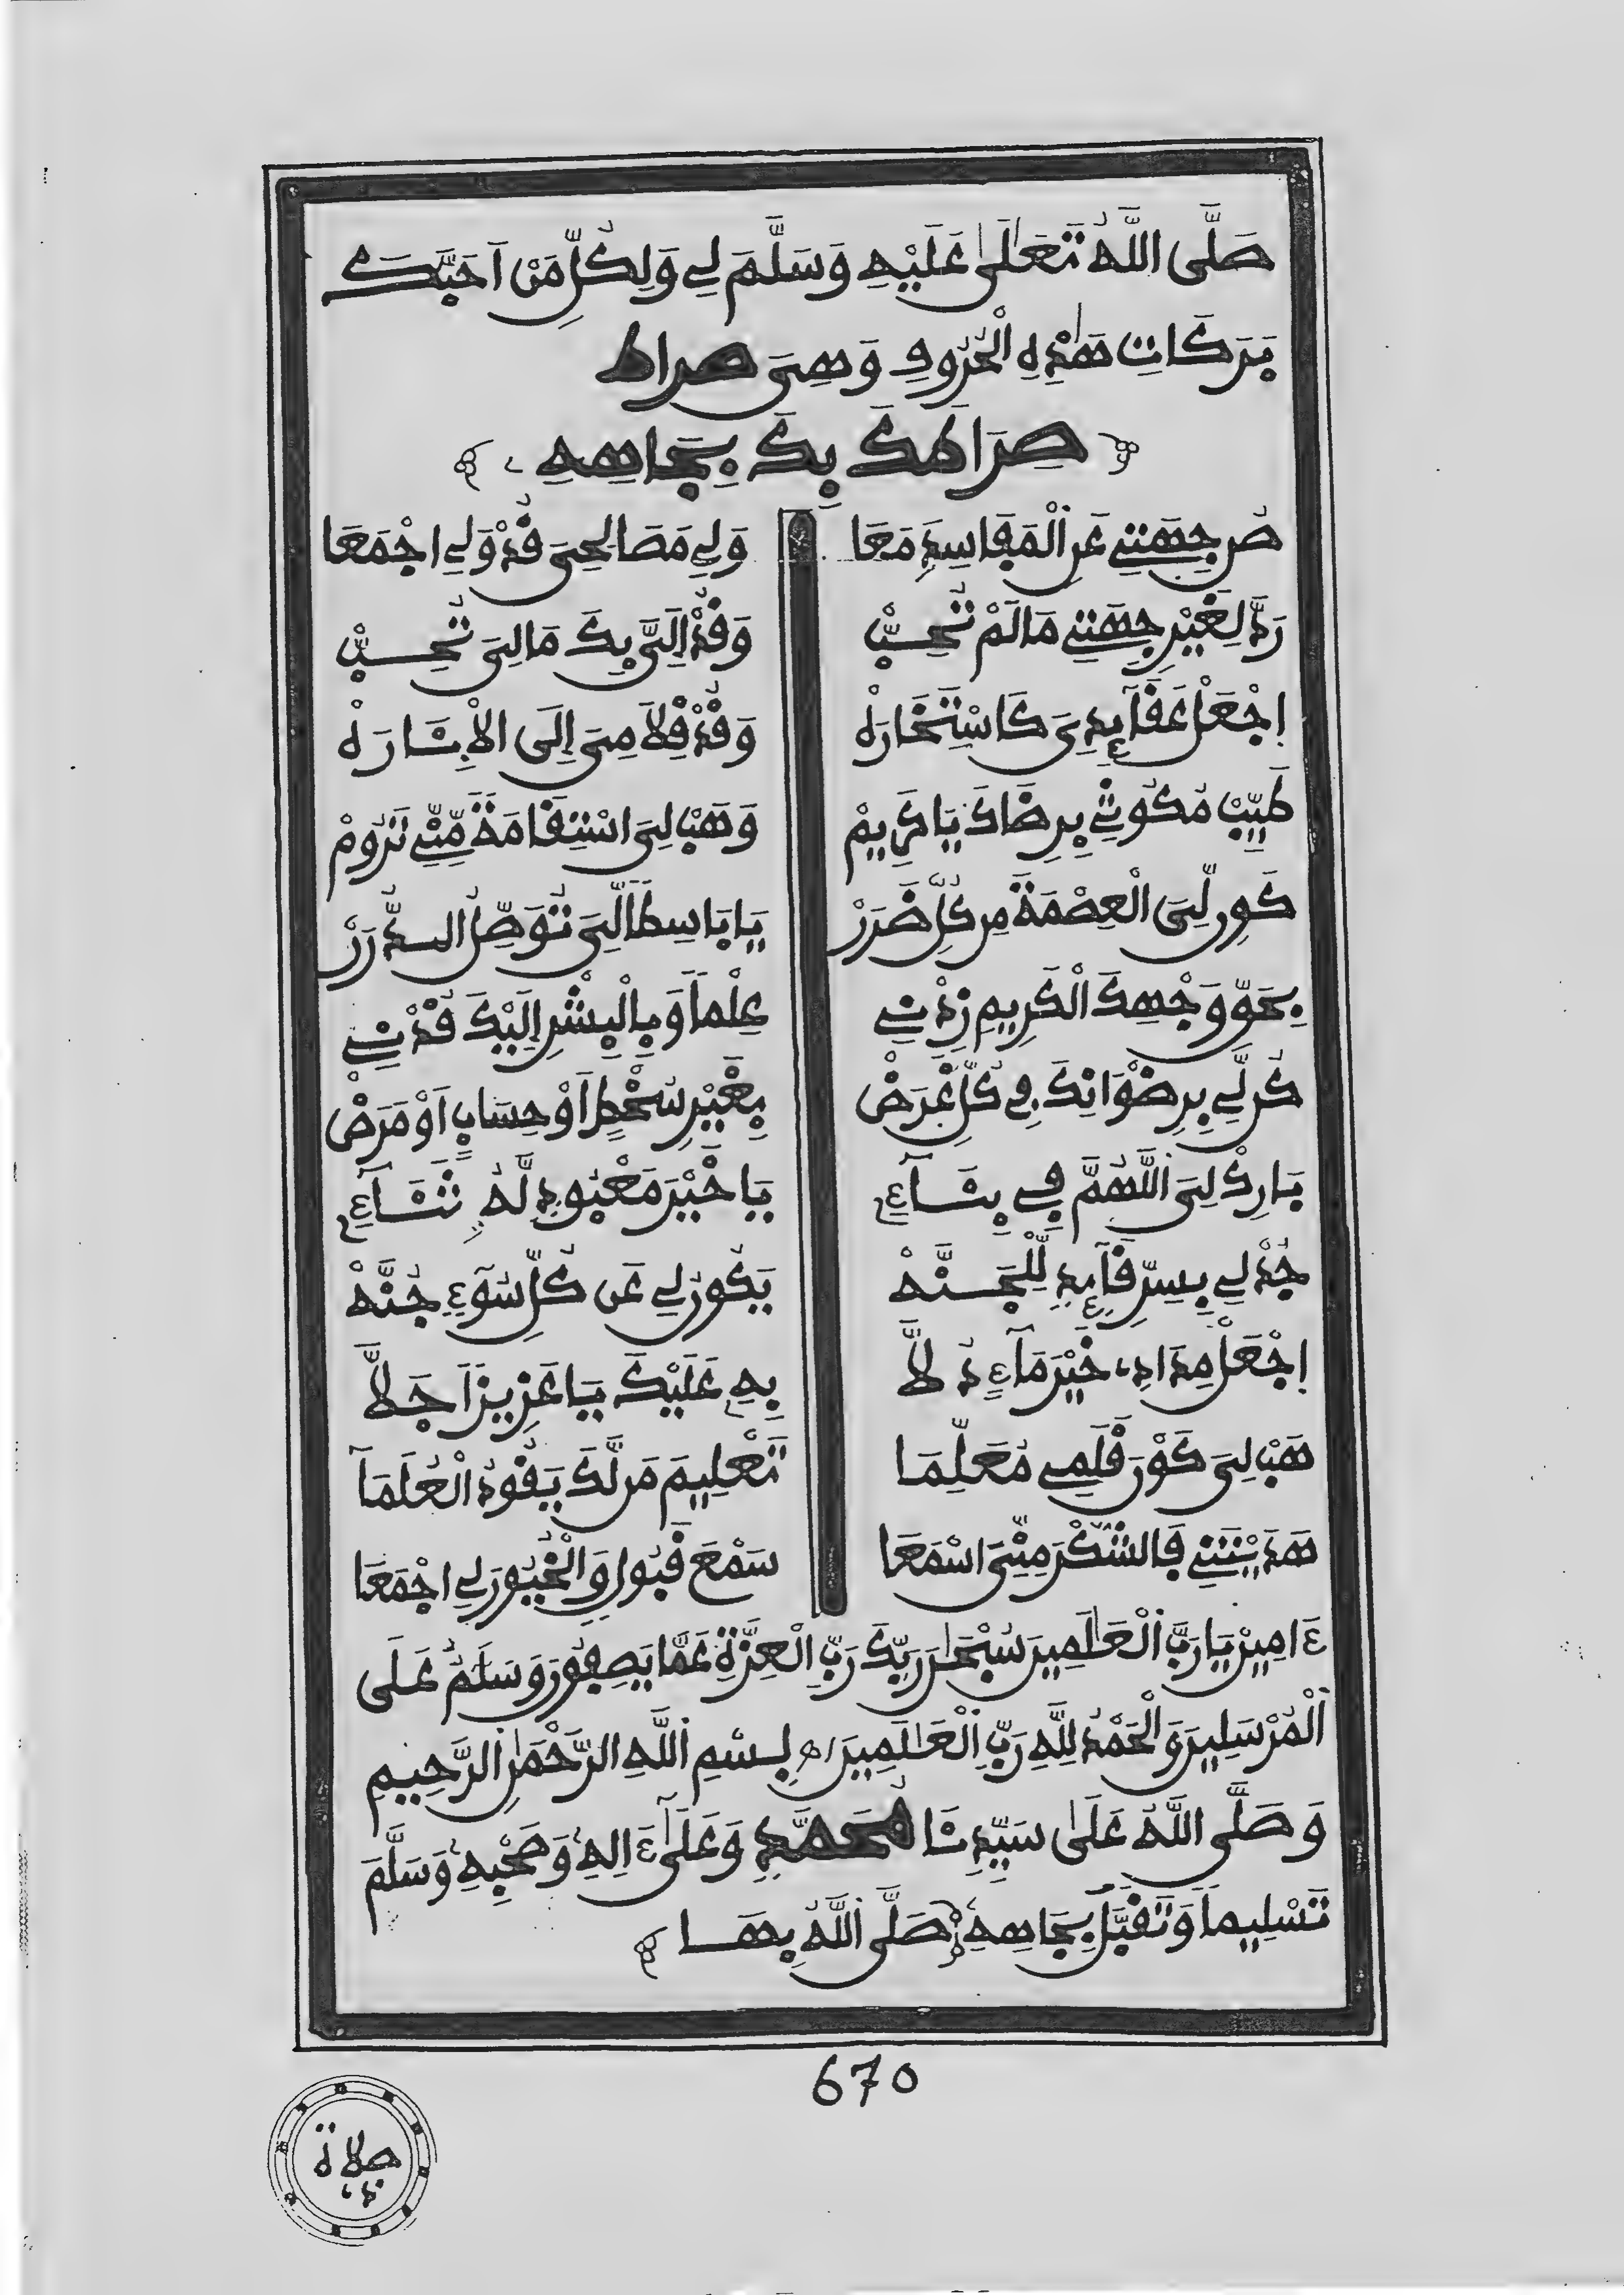 صَلَّى اللَّهُ تَعَالَىٰ عَلَيْهِ وَسَلَّمَ لِي وَلِكُلِّ مَنْ اَحَبَّكَ
بَرَكَاتِ هَٰذِهِ الْحُرُوفِ وَهِىَ صراط
صِرَاطَكَ بِكَ بِجَاهِهِ
صُن جِهَتِي عَنِ الْمَفَاسِدِ مَعَا وَلِي مَصَالِحِى قُدْ وَلِي اجْمَعَا
رُدَّ لِغَيْرِ جِهَتِي مَا لَمْ تُحِبّْ وَقُدْ إِلَىَّ بِكَ مَا لِىَ تُحِبّْ
اِجْعَلْ عَقَآئِدِىَ كَاسْتِخَارَهْ وَقُدْ فِلَامِىَ إِلَى الْإِشَارَهْ
طَيِّبْ مُكُوثِي بِرِضَاكَ يَا كَرِيمْ وَهَبْ لِىَ اسْتِقَامَةً مِّنِّي تَرُومْ
كَوِّن لِّىَ الْعِصْمَةَ مِن كُلِّ ضَرَرْ يَا بَاسِطاً لِّىَ تُوَصِّلُ الدُّرَرْ
بِحَقِّ وَجْهِكَ الْكَرِيمِ زِدْنِي عِلْماً وَبِالْبِشْرِ إِلَيْكَ قُدْنِي
كُن لِّي بِرِضْوَانِكَ فِي كُلِّ غَرَضْ بِغَيْرِ سُخْطٍ اَوْ حِسَابٍ اَوْ مَرَضْ
بَارِكْ لِىَ اللَّهُمَّ فِي بِنَآءِ يَا خَيْرَ مَعْبُودٍ لَّهُ ثَنَآءِ
جُدْ لِي بِسِرٍّ قَآئِدٍ لِّلْجَنَّهْ يَكُونُ لِي عَن كُلِّ سُوٓءٍ جُنَّهْ
اِجْعَلْ مِدَادِى خَيْرَ مَآءٍ دَلَّا بِهِ عَلَيْكَ يَا عَزِيزاً جَلَّا
هَبْ لِىَ كَوْنَ قَلَمِي مُعَلِّمَا تَعْلِيمَ مَن لَّكَ يَقُودُ الْعُلَمَا
هَدَيْتَنِي فَالشُّكْرَ مِنِّىَ اسْمَعَا سَمْعَ قَبُولٍ وَالْخُيُورَ لِي اجْمَعَا
ءَامِينْ يَا رَبَّ الْعَٰلَمِينَ سُبْحَٰنَ رَبِّكَ رَبِّ الْعِزَّةِ عَمَّا يَصِفُونَ وَسَلَٰمٌ عَلَى
الْمُرْسَلِينَ وَالْحَمْدُ لِلَّهِ رَبِّ الْعَٰلَمِينَ اه بِسْمِ اللَّهِ الرَّحْمَٰنِ الرَّحِيمِ
وَصَلَّى اللَّهُ عَلَىٰ سَيِّدِنَا مُحَمَّدٍ وَعَلَىٰٓ ءَالِهِ وَصَحْبِهِ وَسَلَّمَ
تَسْلِيماً وَتَقَبَّلْ بِجَاهِهِ صَلَّى اللَّهُ بِهَا
670
صلاة